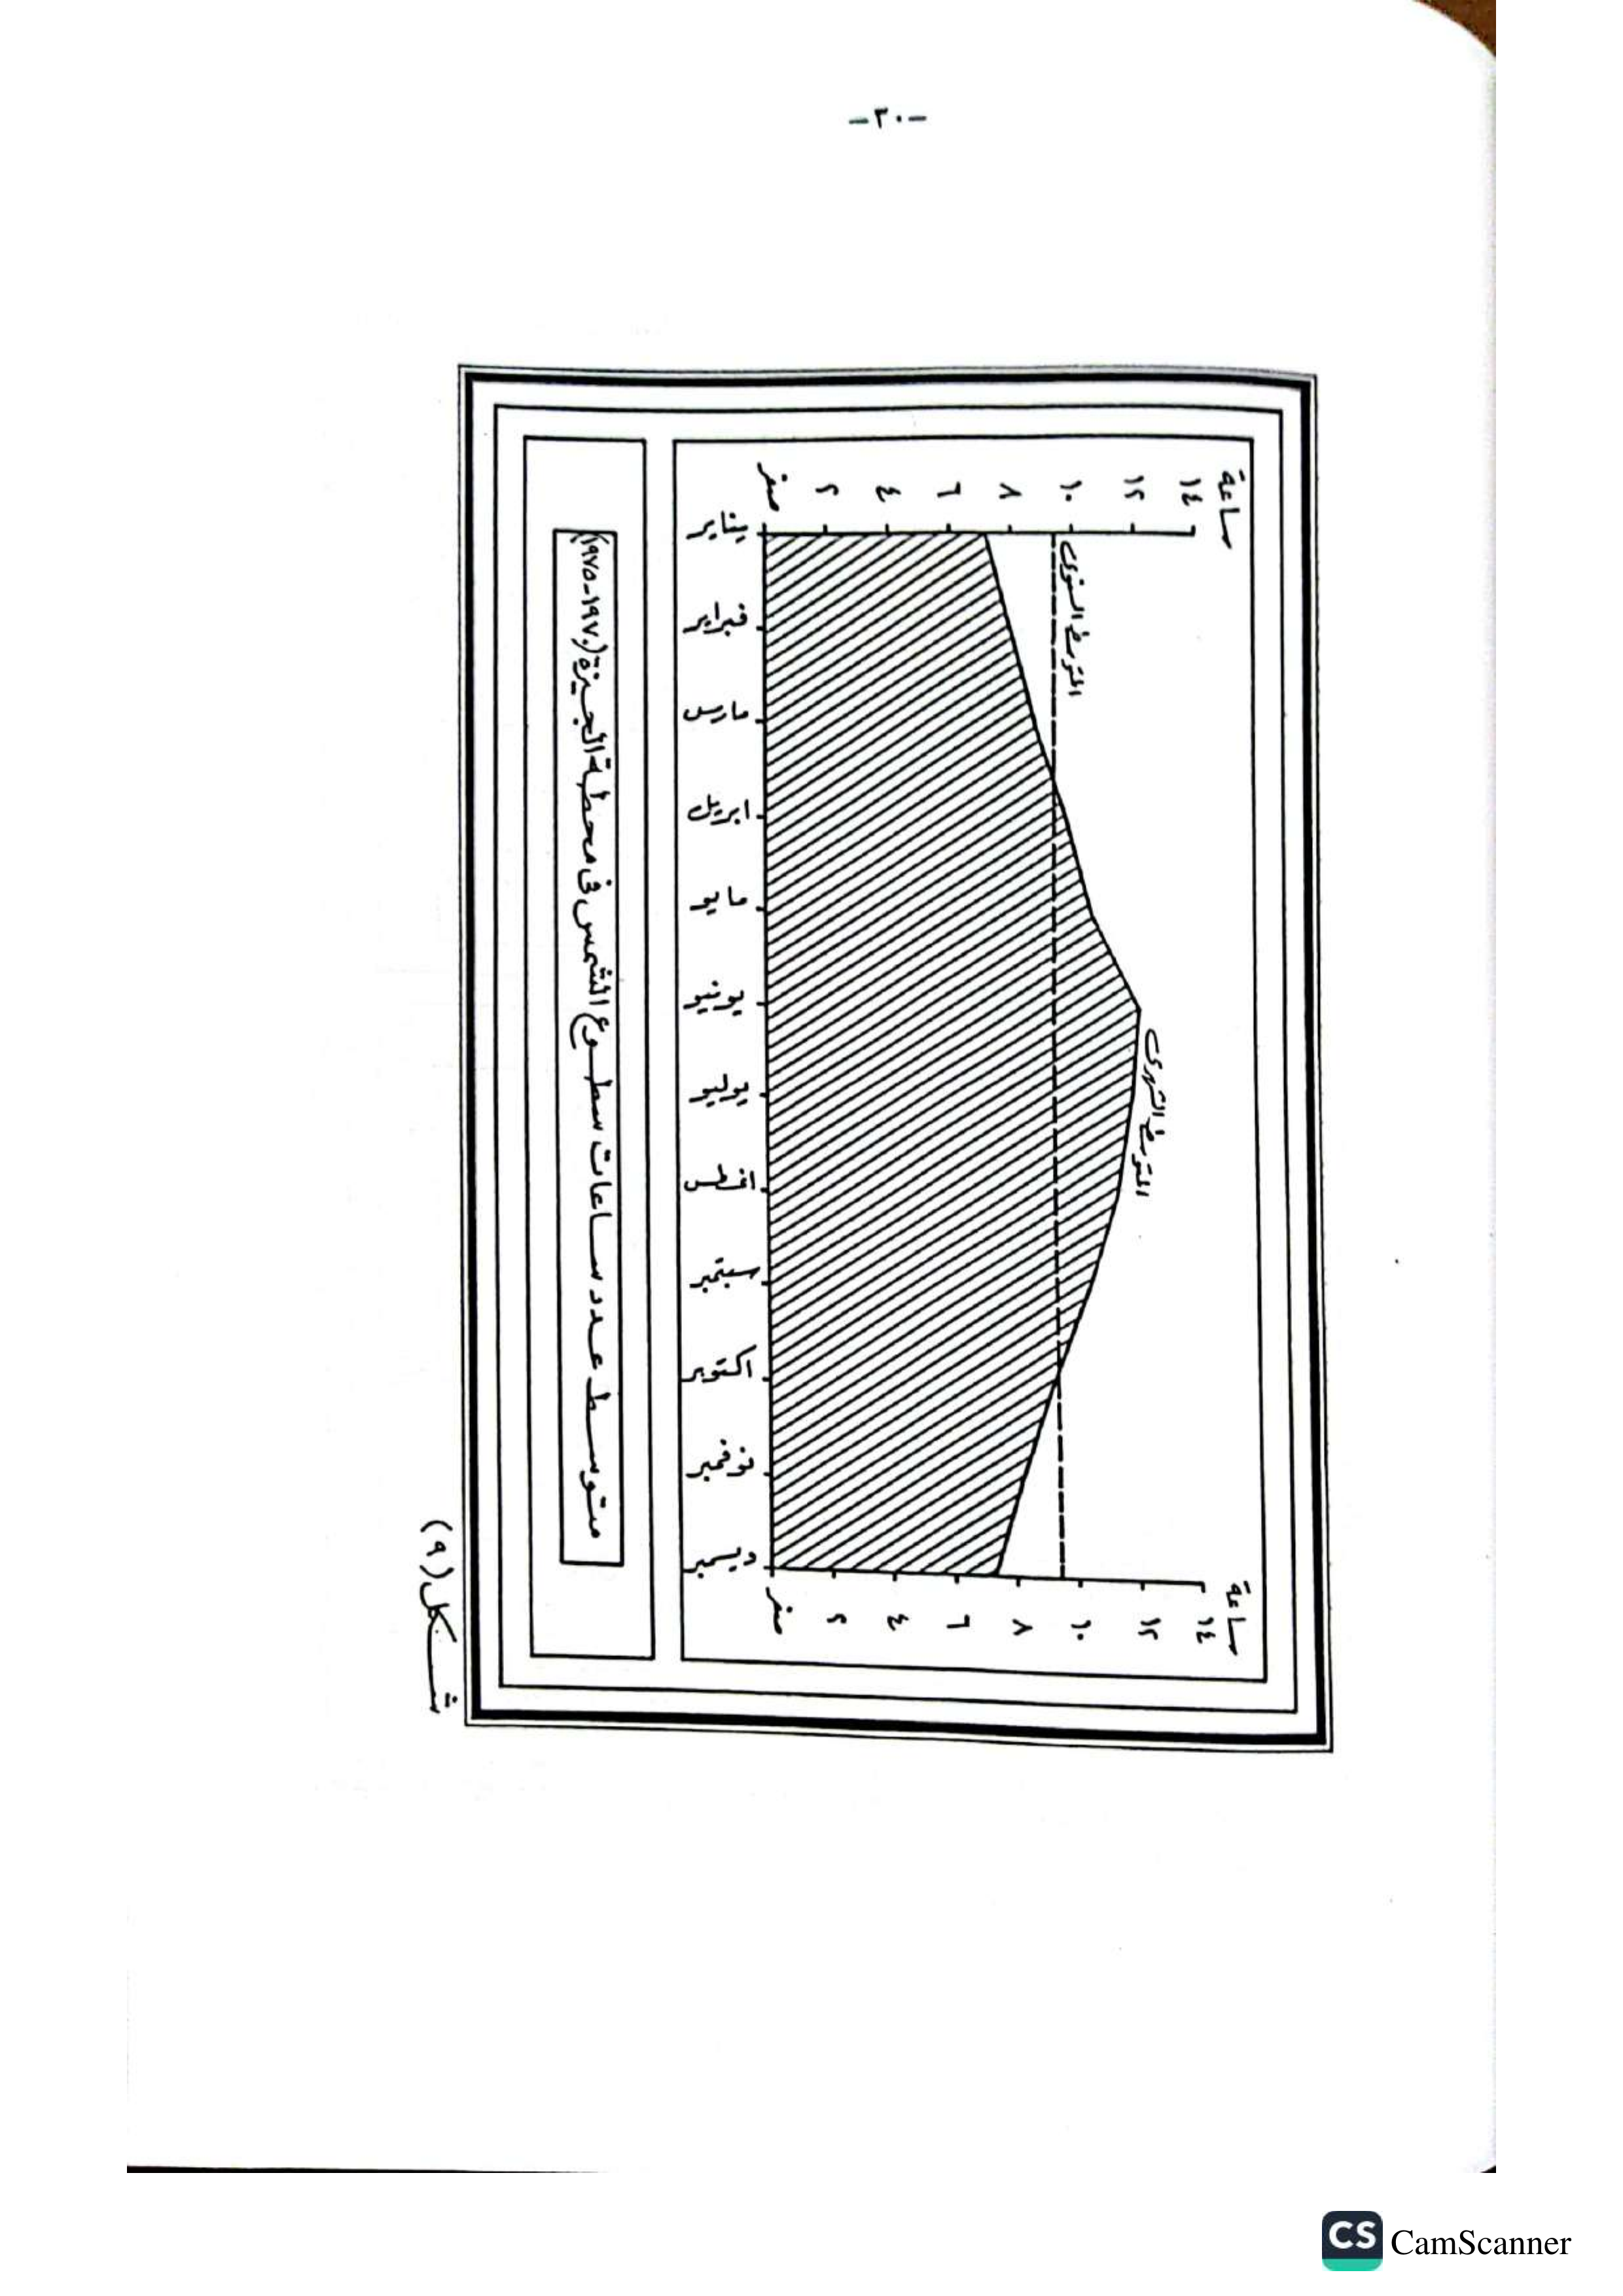 -٣٠-
ساعة
١٤
١٢
١٠
٨
٦
٤
٢
صفر
المتوسط السنوى
المتوسط الشهرى
يناير
فبراير
مارس
ابريل
مايو
يونيو
يوليو
اغسطس
سبتمبر
اكتوبر
نوفمبر
ديسمبر
ساعة
١٤
١٢
١٠
٨
٦
٤
٢
صفر
متوسط عدد ساعات سطوع الشمس فى محطة الجيزة (١٩٧٠-١٩٧٥)
شكل (٩)
CS CamScanner